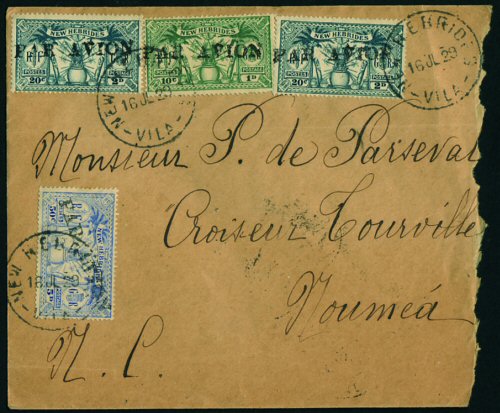 NEW HEBRIDES
PAR AVION
R F
POSTES POSTAGE
20c 2D
NEW HEBRIDES
PAR AVION
POSTES POSTAGE
10c 1D
NEW HEBRIDES
PAR AVION
R F
POSTES POSTAGE
20c 2D
NEW HEBRIDES
16 JL 29
VILA
NEW HEBRIDES
16 JL 29
VILA
Monsieur P. de Parseval
Croiseur Tourville
Nouméa
N. C.
NEW HEBRIDES
50c 5D
NEW HEBRIDES
16 JL 29